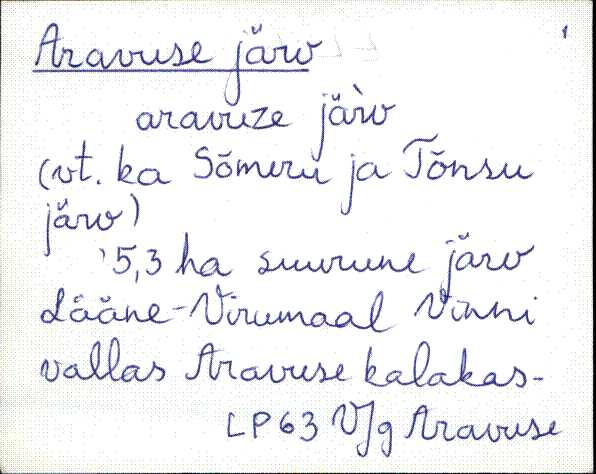 Aravuse järv 1
aravuze jär̀v
(vt. ka Sõmeru ja Tõnsu
järv)
'5,3 ha suurune järv
Lääne-Virumaal Vinni
vallas Aravuse kalakas-
LP63 V/g Aravuse